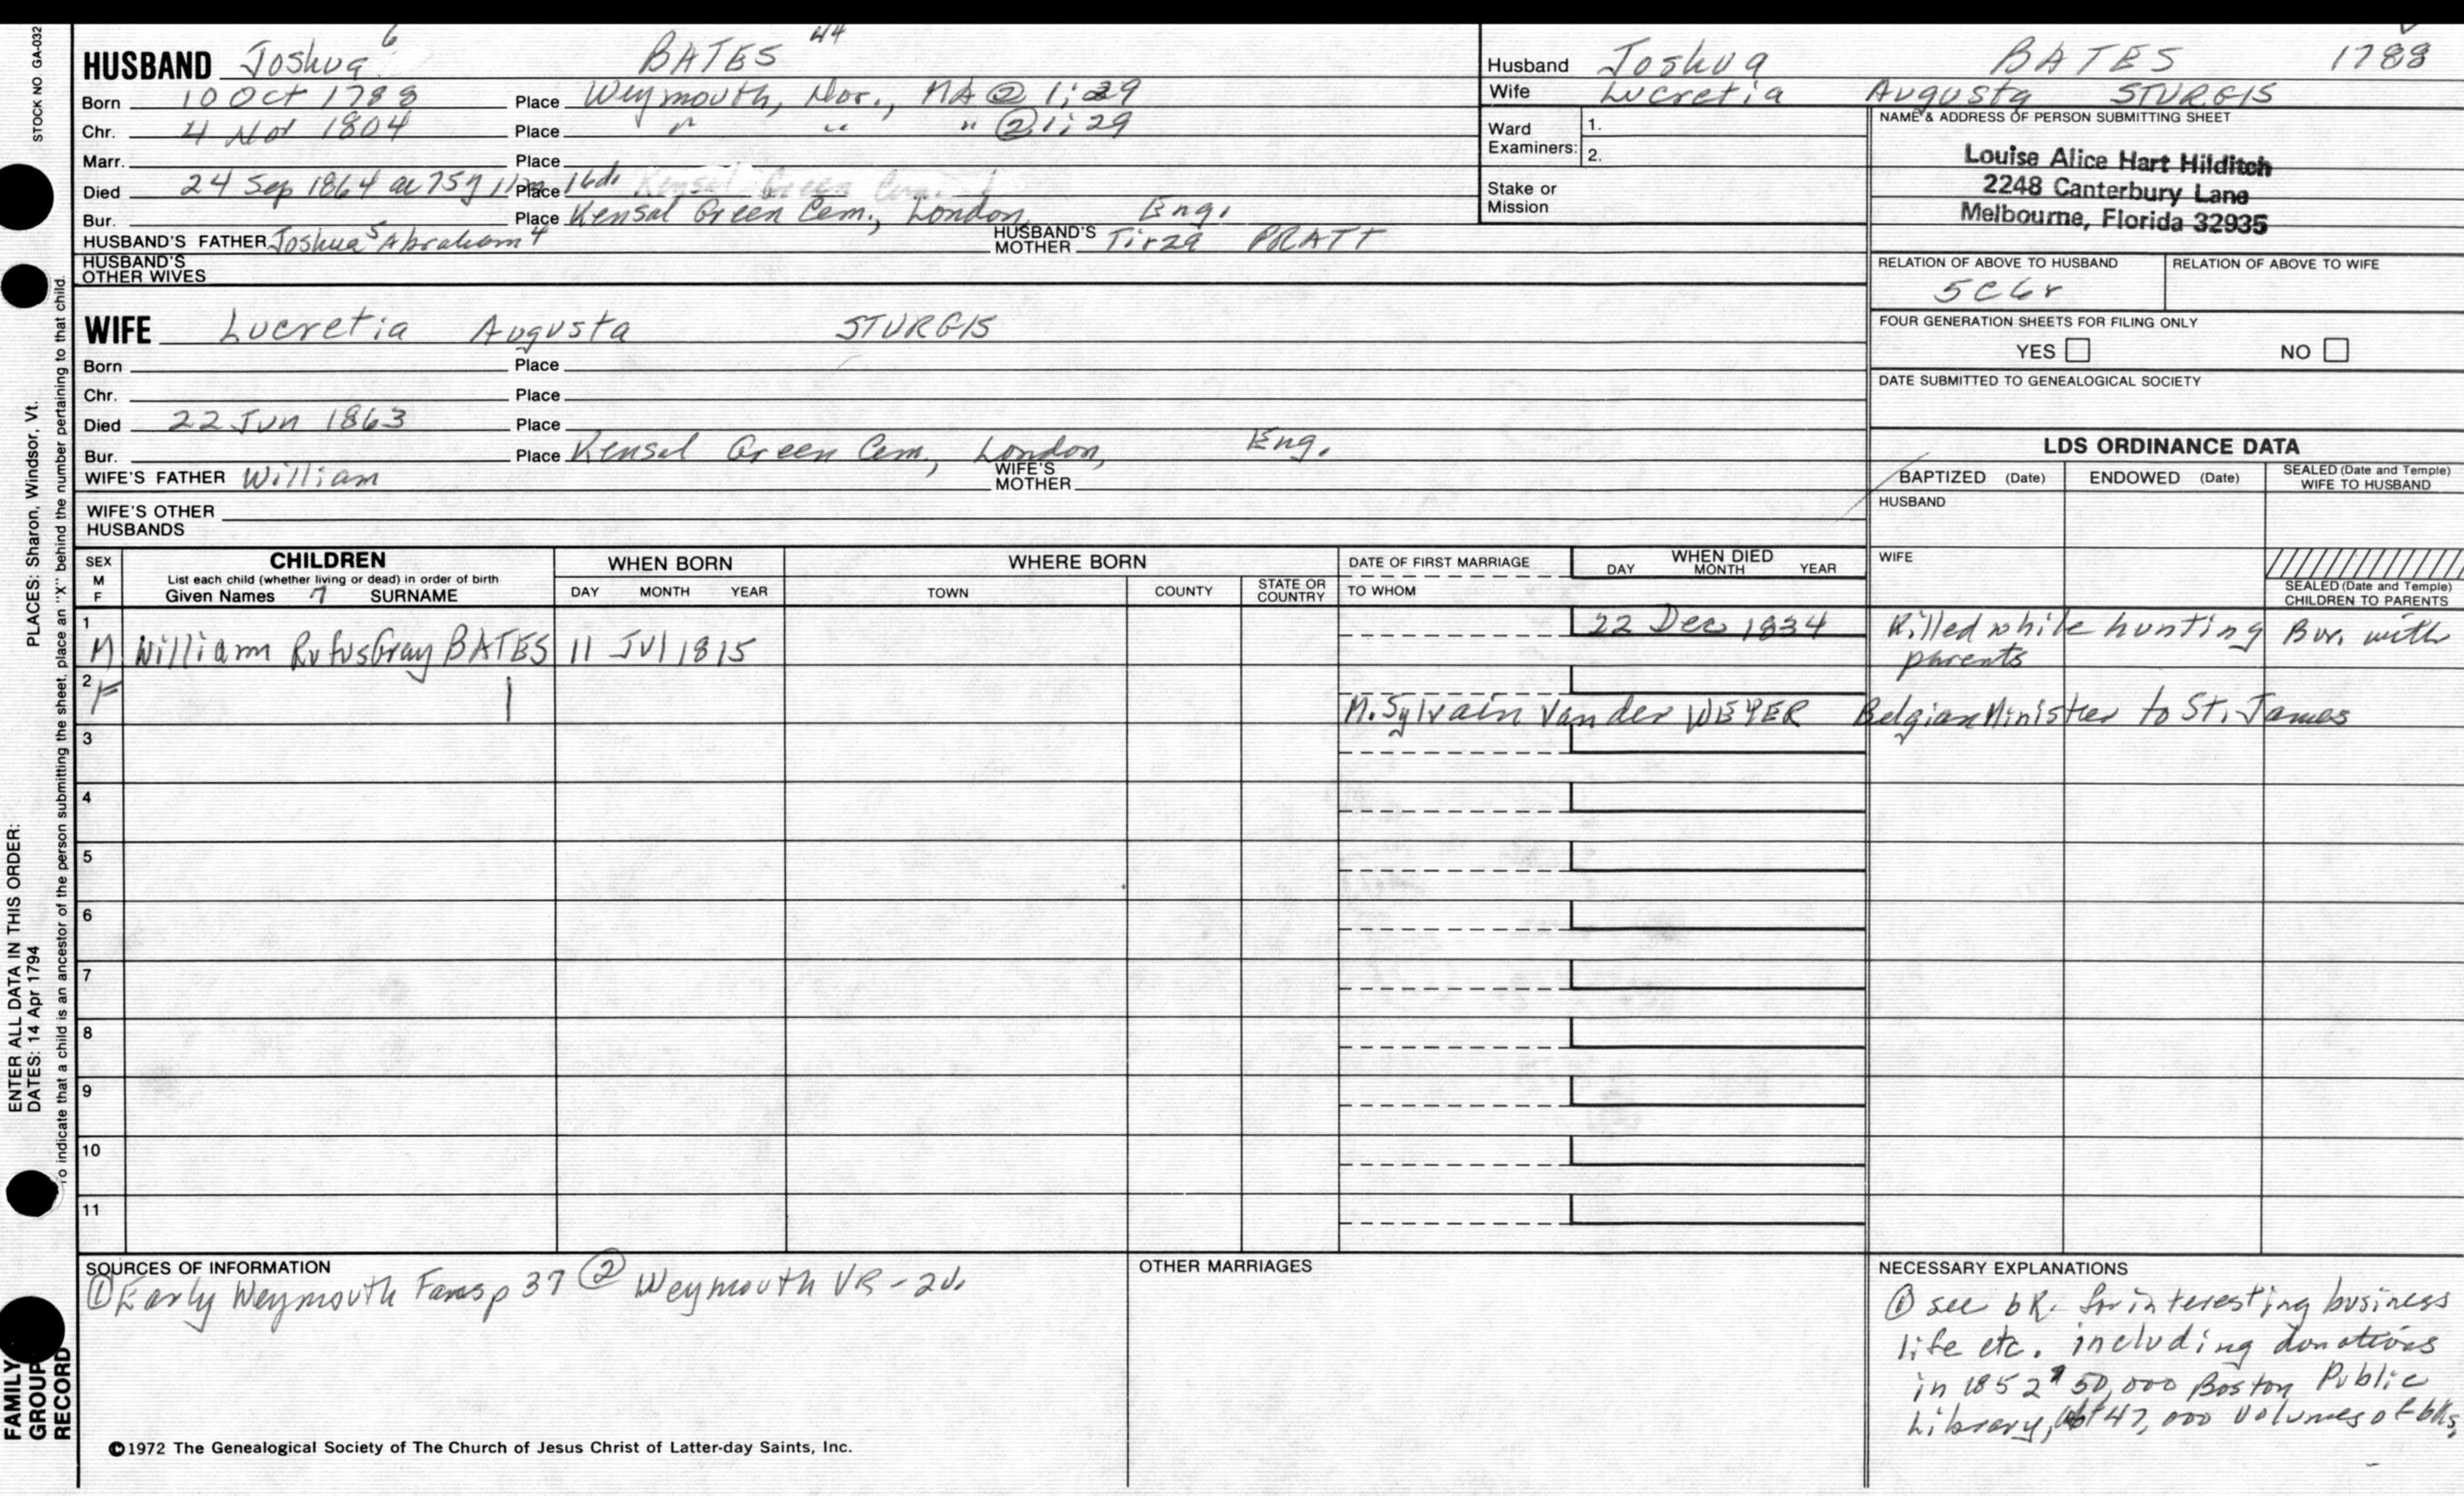 STOCK NO GA-032
HUSBAND Joshua 6 BATES 44
Born 10 Oct 1788 Place Weymouth, Nor., MA @ 1; 29
Chr. 4 Nov 1804 Place " " " @ 1; 29
Marr. Place
Died 24 Sep 1864 ae 75y 11m 16d Place Kensal Green Cem.
Bur. Place Kensal Green Cem., London Eng.
HUSBAND'S FATHER Joshua 5 Abraham 4 HUSBAND'S MOTHER Tirza PRATT
HUSBAND'S OTHER WIVES
WIFE Lucretia Augusta STURGIS
Born Place
Chr. Place
Died 22 Jun 1863 Place
Bur. Place Kensal Green Cem., London, Eng.
WIFE'S FATHER William WIFE'S MOTHER
WIFE'S OTHER HUSBANDS
Husband Joshua BATES 1788
Wife Lucretia Augusta STURGIS
Ward Examiners: 1. 2.
Stake or Mission
NAME & ADDRESS OF PERSON SUBMITTING SHEET
Louise Alice Hart Hilditch
2248 Canterbury Lane
Melbourne, Florida 32935
RELATION OF ABOVE TO HUSBAND RELATION OF ABOVE TO WIFE
5C6r
FOUR GENERATION SHEETS FOR FILING ONLY
YES NO
DATE SUBMITTED TO GENEALOGICAL SOCIETY
LDS ORDINANCE DATA
BAPTIZED (Date) ENDOWED (Date) SEALED (Date and Temple) WIFE TO HUSBAND
HUSBAND
WIFE
SEALED (Date and Temple) CHILDREN TO PARENTS
SEX M F
CHILDREN
List each child (whether living or dead) in order of birth
Given Names 7 SURNAME
WHEN BORN
DAY MONTH YEAR
WHERE BORN
TOWN COUNTY STATE OR COUNTRY
DATE OF FIRST MARRIAGE
TO WHOM
WHEN DIED
DAY MONTH YEAR
1 M William Rufus Gray BATES 11 Jul 1815 22 Dec 1834 Killed while hunting Bur. with parents
2 F M. Sylvain Van der WEYER Belgian Minister to St. James
3
4
5
6
7
8
9
10
11
SOURCES OF INFORMATION
① Early Weymouth Fams p 37 ② Weymouth VR - 2v.
OTHER MARRIAGES
NECESSARY EXPLANATIONS
① see bk. for interesting business
life etc. including donations
in 1852 50,000 Boston Public
Library, 47,000 volumes of bks,
©1972 The Genealogical Society of The Church of Jesus Christ of Latter-day Saints, Inc.
ENTER ALL DATA IN THIS ORDER:
DATES: 14 Apr 1794 PLACES: Sharon, Windsor, Vt.
To indicate that a child is an ancestor of the person submitting the sheet, place an "X" behind the number pertaining to that child.
FAMILY GROUP RECORD